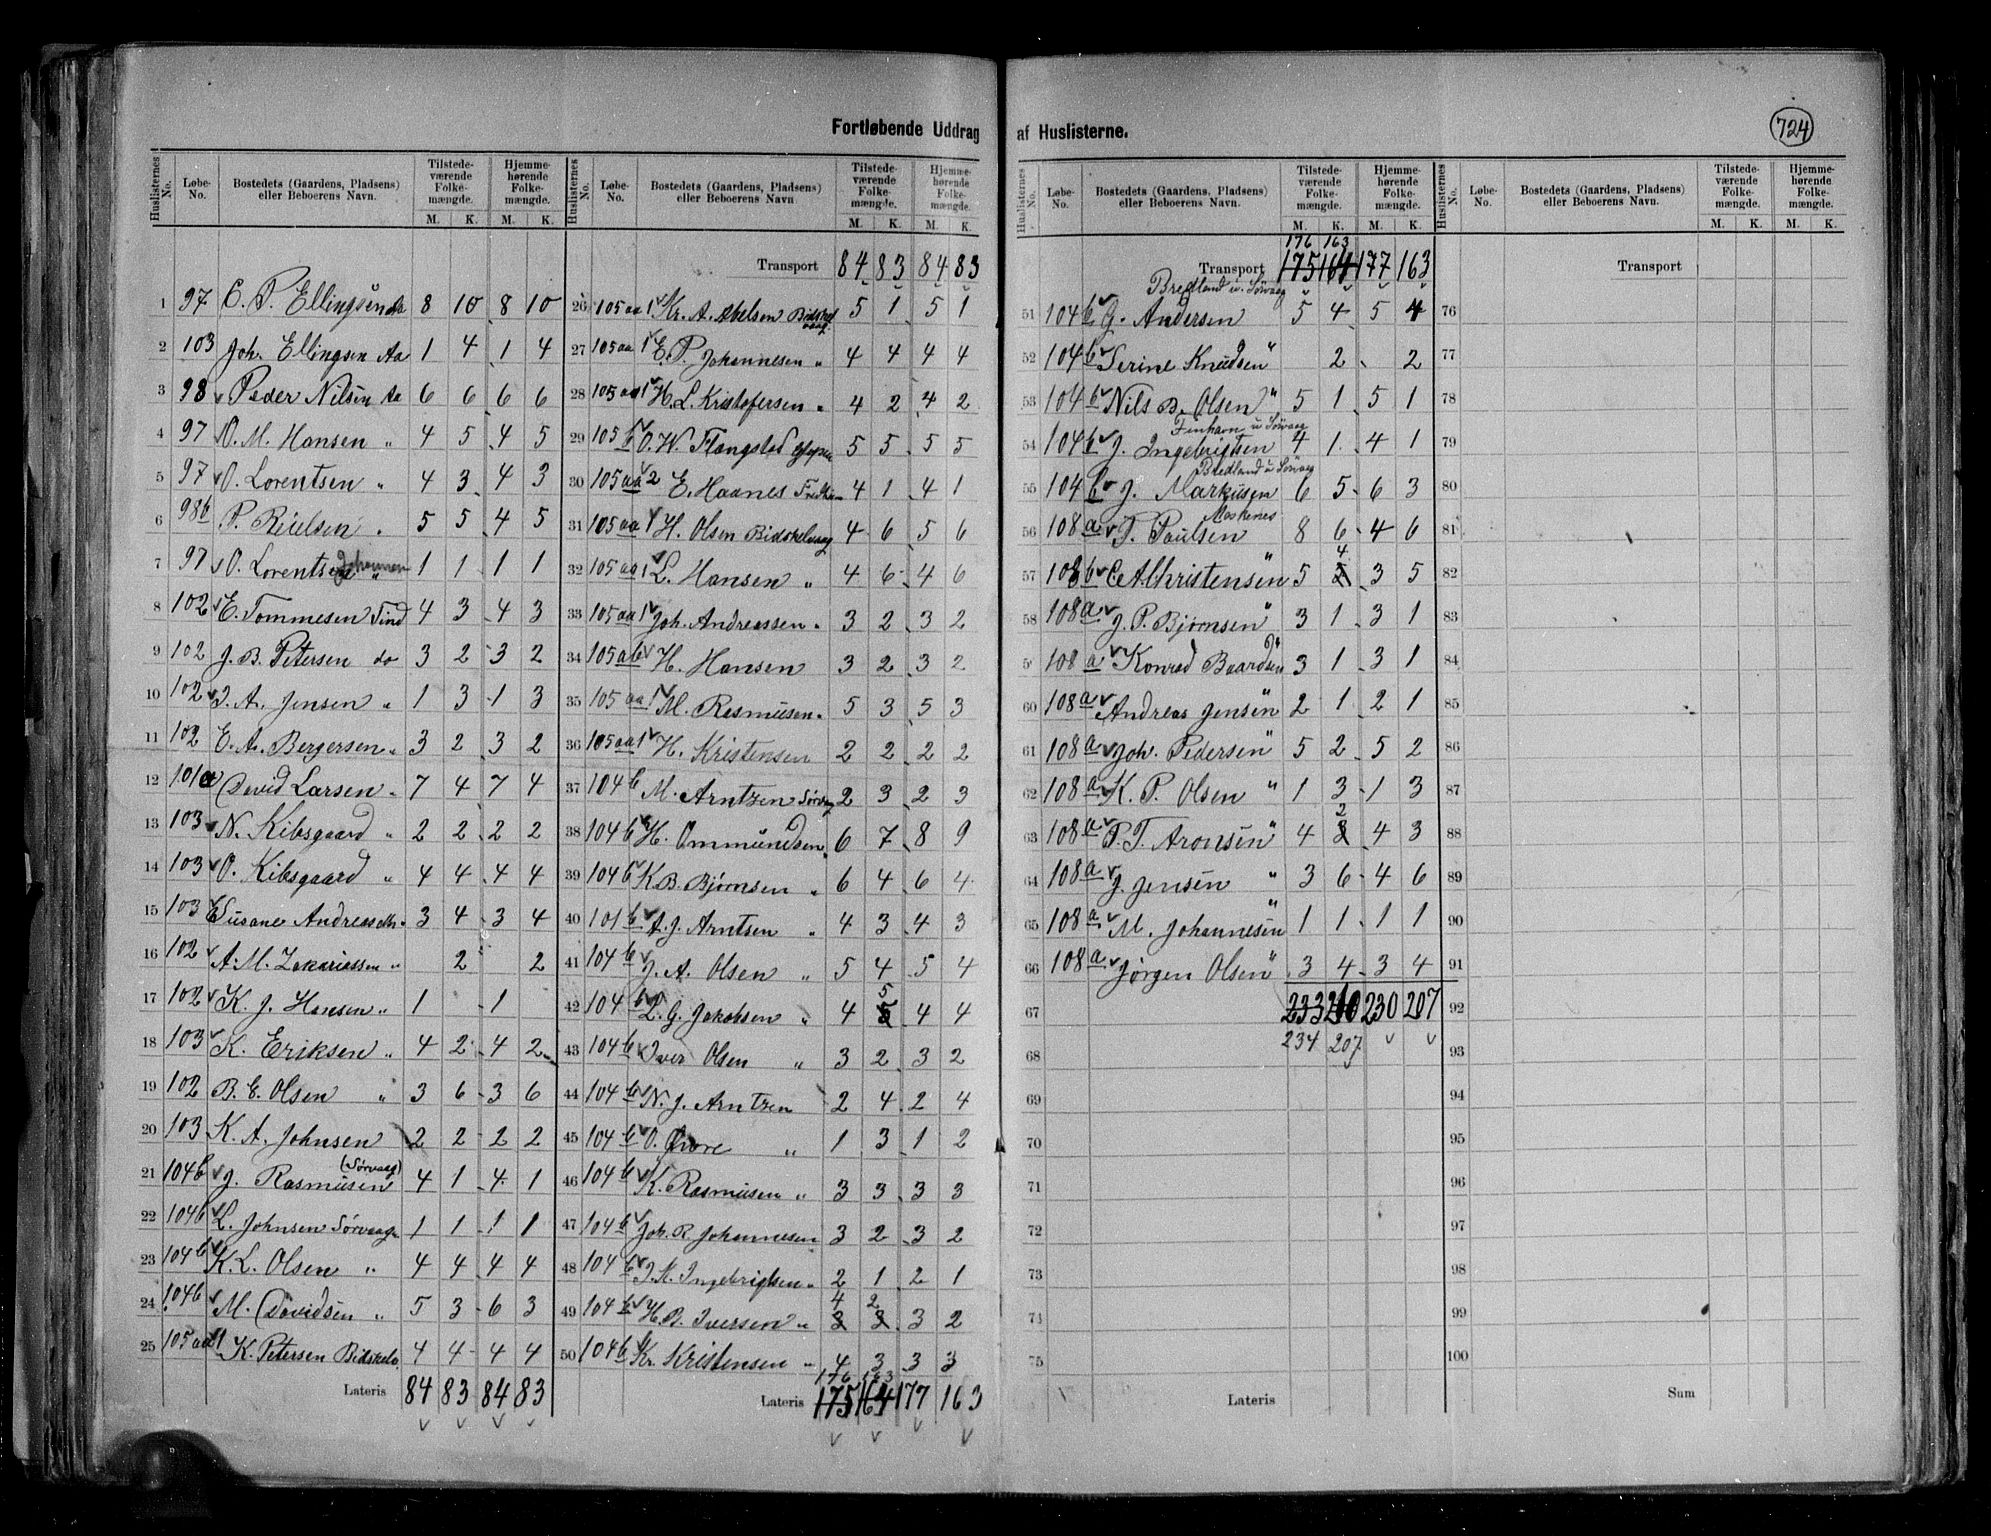 Fortløbende Uddrag af Huslisterne.
724
Huslisternes No. Løbe-No. Bostedets (Gaardens, Pladsens) eller Beboerens Navn. Tilstedeværende Folkemængde. M. K. Hjemmehørende Folkemængde. M. K.
1 97 E. P. Ellingsen Aa 8 10 8 10
2 103 Joh. Ellingsen Aa 1 4 1 4
3 98 Peder Nilsen Aa 6 6 6 6
4 97 O. M. Hansen " 4 5 4 5
5 97 O. Lorentsen " 4 3 4 3
6 98b P. Reielsen " 5 5 4 5
7 97 O. Lorentsen Johannen " 1 1 1 1
8 102 E. Tommesen Tind 4 3 4 3
9 102 J. B. Petersen do 3 2 3 2
10 102 J. A. Jensen " 1 3 1 3
11 102 E. A. Bergersen " 3 2 3 2
12 101a David Larsen " 7 4 7 4
13 103 N. Kibsgaard " 2 2 2 2
14 103 O. Kibsgaard " 4 4 4 4
15 103 Susane Andreasdtr. 3 4 3 4
16 102 A. M. Zakariassen " 2 2
17 102 K. J. Hansen " 1 1
18 103 K. Eriksen " 4 2 4 2
19 102 B. E. Olsen " 3 6 3 6
20 103 K. A. Johnsen 2 2 2 2
21 104b J. Rasmusen (Sørvaag) 4 1 4 1
22 104b L. Johnsen Sørvaag 1 1 1 1
23 104b K. L. Olsen " 4 4 4 4
24 104b M. Davidsen " 5 3 6 3
25 105aa1 K. Petersen Bidskelv 4 4 4 4
Lateris 84 83 84 83
Huslisternes No. Løbe-No. Bostedets (Gaardens, Pladsens) eller Beboerens Navn. Tilstedeværende Folkemængde. M. K. Hjemmehørende Folkemængde. M. K.
Transport 84 83 84 83
26 105aa1 Kr. A. Akelsen Bidskelvaag 5 1 5 1
27 105aa1 E. P. Johannesen " 4 4 4 4
28 105aa1 H. L. Kristofersen " 4 2 4 2
29 105b O. W. Flangstad 5 5 5 5
30 105aa2 E. Haanes 4 1 4 1
31 105aa1 H. Olsen Bidskelvaag 4 6 5 6
32 105aa1 L. Hansen " 4 6 4 6
33 105aa1 Joh. Andreassen " 3 2 3 2
34 105ab H. Hansen 3 2 3 2
35 105aa1 M. Rasmusen " 5 3 5 3
36 105aa1 H. Kristensen 2 2 2 2
37 104b M. Arntzen Sørvaag 2 3 2 3
38 104b H. Ommundsen " 6 7 8 9
39 104b K. B. Bjørnsen " 6 4 6 4
40 101b A. J. Arntsen " 4 3 4 3
41 104b J. A. Olsen " 5 4 5 4
42 104b L. G. Jakobsen " 4 5 5 4 4
43 104b Iver Olsen " 3 2 3 2
44 104b N. J. Arntzen 2 4 2 4
45 104b O. Hvore " 1 3 1 2
46 104b K. Rasmusen " 3 3 3 3
47 104b Joh. R. Johannesen 3 2 3 2
48 104b J. M. Ingebrigtsen " 2 1 2 1
49 104b H. R. Iversen " 4 3 2 3 3 2
50 104b Kr. Kristensen " 4 3 3 3
176 163
Lateris 175 164 177 163
Huslisternes No. Løbe-No. Bostedets (Gaardens, Pladsens) eller Beboerens Navn. Tilstedeværende Folkemængde. M. K. Hjemmehørende Folkemængde. M. K.
176 163
Transport 175 164 177 163
Bredland u. Sørvaag
51 104b G. Andersen 5 4 5 4
52 104b Serine Knudsen " 2 2
53 104b Nils B. Olsen " 5 1 5 1
Finhavn u Sørvaag
54 104b J. Ingebrigtsen 4 1 4 1
Bredland u Sørvaag
55 104b J. Markusen 6 5 6 3
Moskenes
56 108a T. Paulsen 8 6 4 6
57 108b C A Christensen " 5 4 5 3 5
58 108a J. P. Bjørnsen " 3 1 3 1
5 108a Konrad Baardsen 3 1 3 1
60 108a Andreas Jensen " 2 1 2 1
61 108a Joh. Pedersen " 5 2 5 2
62 108a K. P. Olsen " 1 3 1 3
63 108a P. T. Aronsen " 4 2 3 4 3
64 108a J. Jensen " 3 6 4 6
65 108a M. Johannesen " 1 1 1 1
66 108a Jørgen Olsen " 3 4 3 4
67 233 210 230 207
68 234 207
69
70
71
72
73
74
75
Lateris
Huslisternes No. Løbe-No. Bostedets (Gaardens, Pladsens) eller Beboerens Navn. Tilstedeværende Folkemængde. M. K. Hjemmehørende Folkemængde. M. K.
Transport
76
77
78
79
80
81
82
83
84
85
86
87
88
89
90
91
92
93
94
95
96
97
98
99
100
Sum